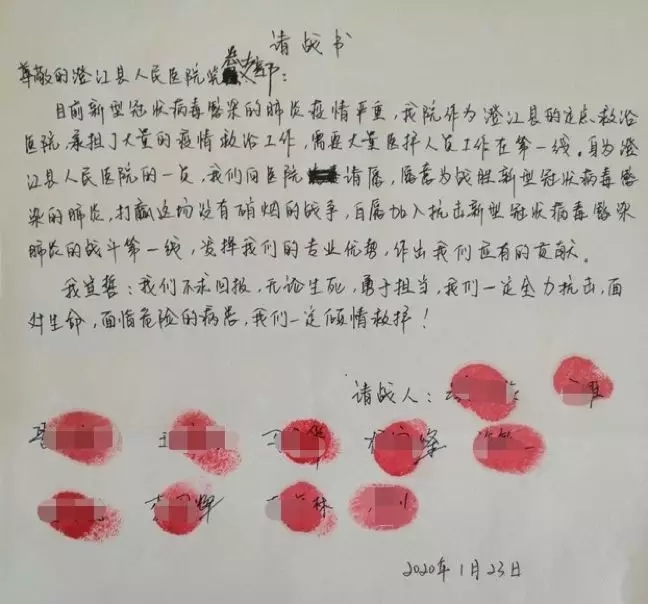 请战书
尊敬的澄江县人民医院老师：
目前新型冠状病毒感染的肺炎疫情严重，我院作为澄江县的定点救治
医院，承担了大量的疫情救治工作，需要大量医护人员工作在第一线。身为澄
江县人民医院的一员，我们向医院请愿，愿意为战胜新型冠状病毒感
染的肺炎，打赢这场没有硝烟的战争，自愿加入抗击新型冠状病毒感染
肺炎的战斗第一线，发挥我们的专业优势，作出我们应有的贡献。
我宣誓：我们不求回报，无论生死，勇于担当，我们一定全力抗击，面
对生命，面临危险的病患，我们一定倾情救护！
请战人：
辉 林
2020年1月23日